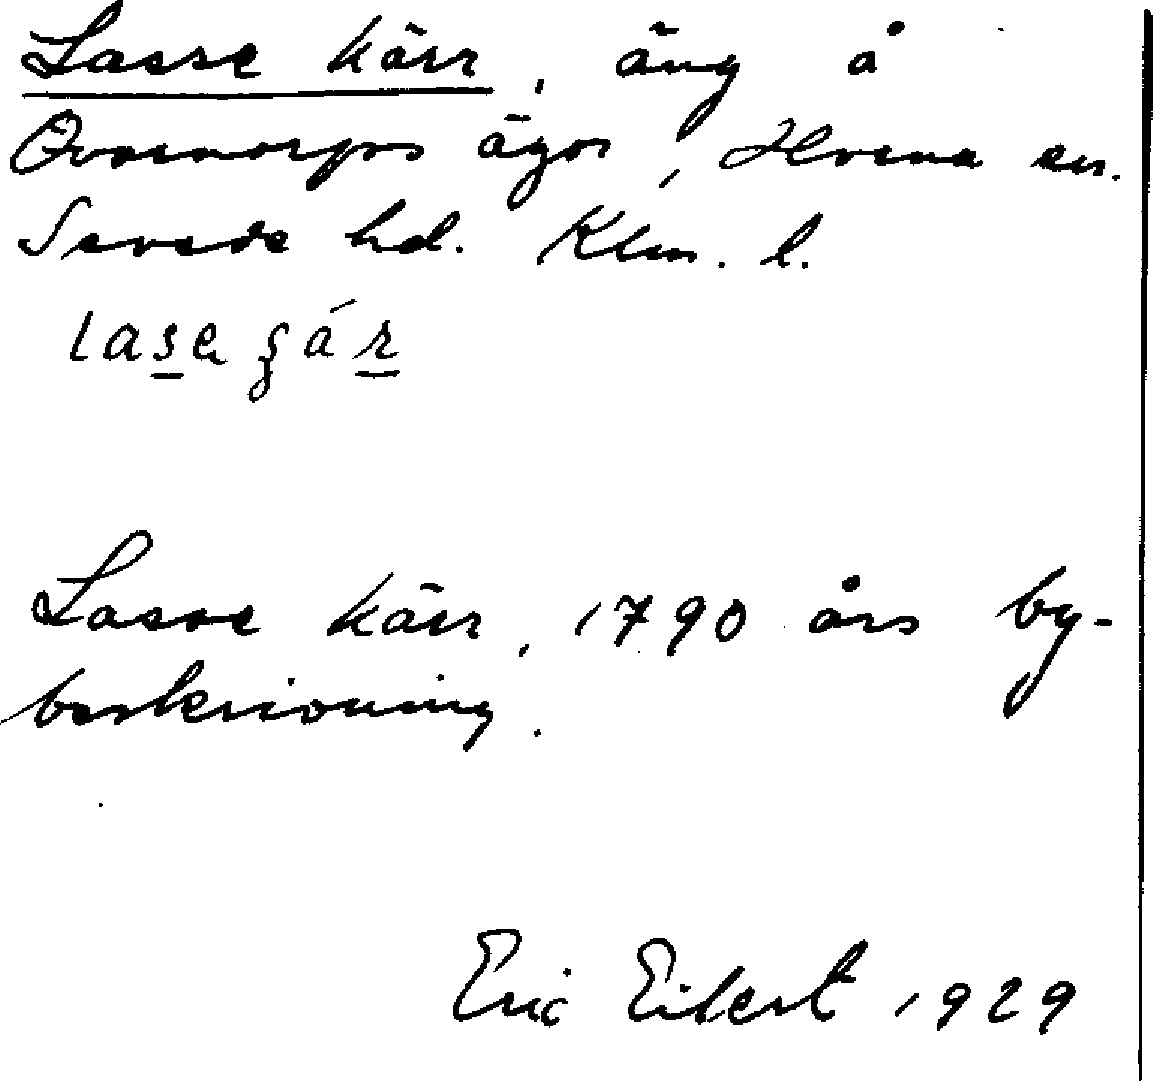 Lasse kärr, äng å
Övrarps ägor, Hvena sn.
Sevede hd. Klm. l.
Lasse kärr, 1790 års by-
beskrivning.
Eric Eilert 1929